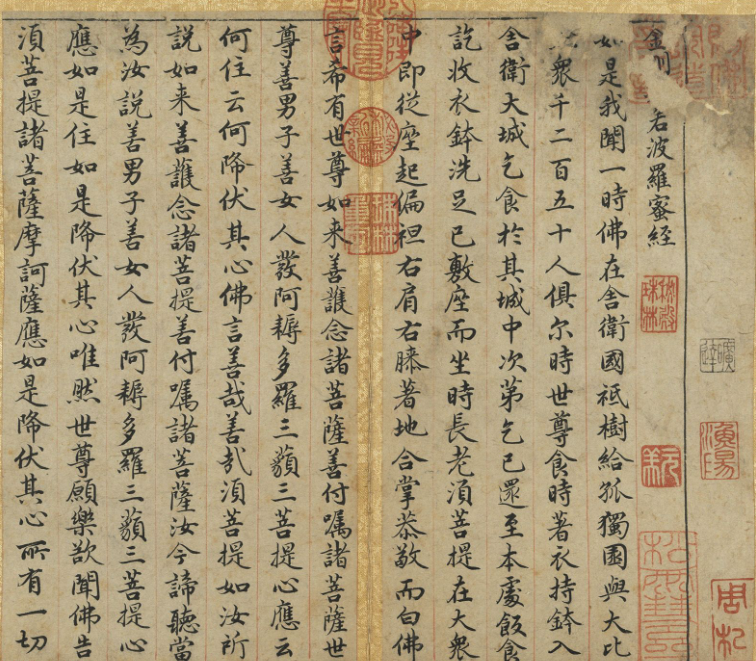 金若波羅蜜經
如是我聞一時佛在舍衛國祇樹給孤獨園與大比
衆千二百五十人俱尒時世尊食時著衣持鉢入
舍衛大城乞食於其城中次第乞已還至本處飯食
訖收衣鉢洗足已敷座而坐時長老湏菩提在大衆
中即從座起偏袒右肩右膝著地合掌恭敬而白佛
言希有世尊如来善護念諸菩薩善付嘱諸菩薩世
尊善男子善女人發阿耨多羅三藐三菩提心應云
何住云何降伏其心佛言善哉善哉湏菩提如汝所
說如来善護念諸菩提善付嘱諸菩薩汝今諦聽當
為汝說善男子善女人發阿耨多羅三藐三菩提心
應如是住如是降伏其心唯然世尊願樂欲聞佛告
湏菩提諸菩薩摩訶薩應如是降伏其心所有一切